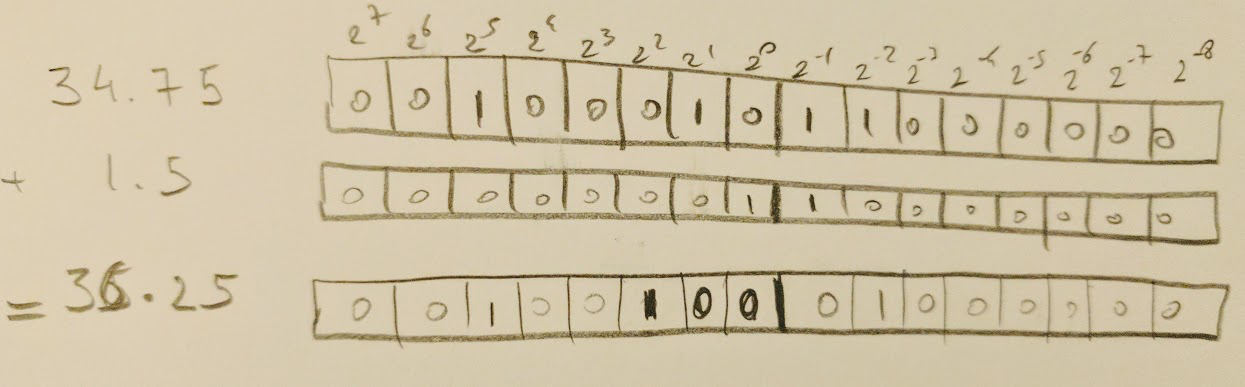 2⁷ 2⁶ 2⁵ 2⁴ 2³ 2² 2¹ 2⁰ 2⁻¹ 2⁻² 2⁻³ 2⁻⁴ 2⁻⁵ 2⁻⁶ 2⁻⁷ 2⁻⁸
34.75 0 0 1 0 0 0 1 0 1 1 0 0 0 0 0 0
+ 1.5 0 0 0 0 0 0 0 1 1 0 0 0 0 0 0 0
= 36.25 0 0 1 0 0 1 0 0 0 1 0 0 0 0 0 0